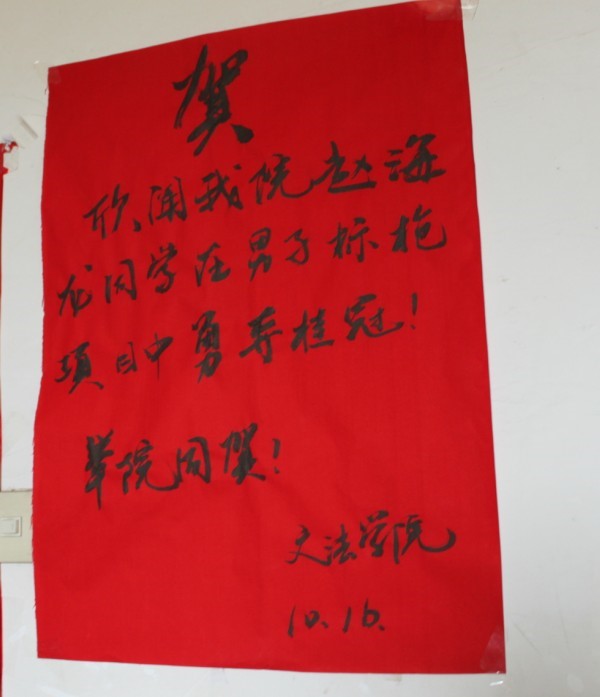 贺
欣闻我院赵海
龙同学在男子标枪
项目中勇夺桂冠！
举院同贺！
文法学院
10.16.